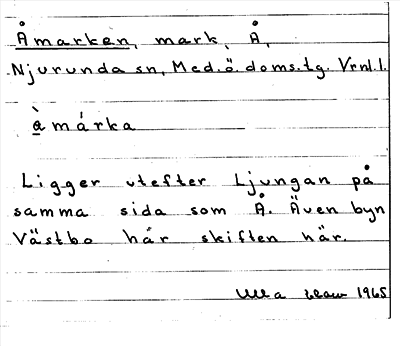 Åmarken, mark, Å,
Njurunda sn, Med.ö.doms.tg. Vrnl.l.
àmárka
Ligger utefter Ljungan på
samma sida som Å. Även byn
Västbo hár skiften här.
Ulla 1965